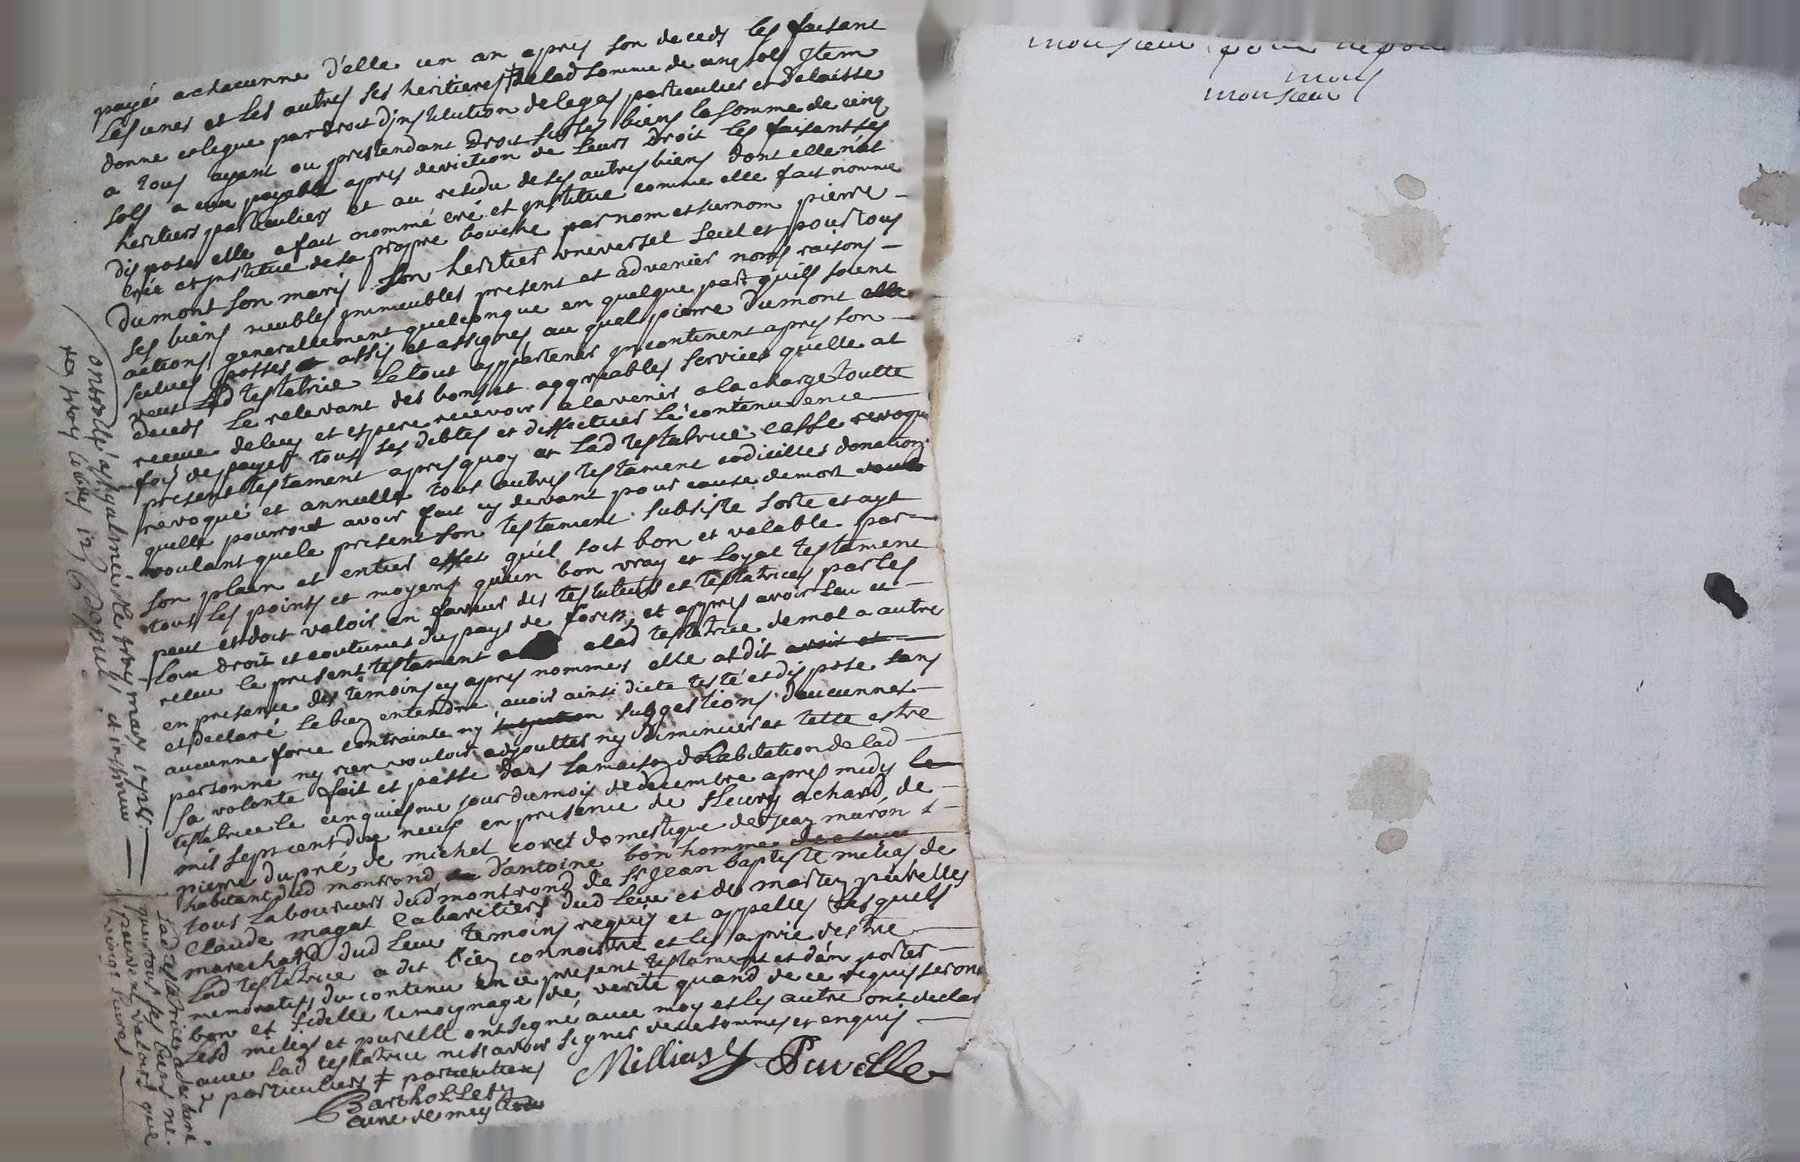 payés a chacunne d'elle un an apres son deceds les faisant
les unes et les autres ses heritieres ‡ de lad somme de cinq sols Item
donne et legue par droit d'institution de legas particulier et delaisse
a tous ayant ou pretendant droit sur ses biens la somme de cinq
sols a eux payable apres deviction de leurs droit les faisant ses
heritiers particuliers et au residu de ses autres biens dont elle n'at
disposé elle a fait nommé créé et institue comme elle fait nomme
crée et institue de sa propre bouche par nom et surnom pierre
Dumont son mary son heritier universel seul et pour tous
ses biens meubles immeubles present et advenir noms raisons
actions generallement quelconque en quelque part quils soient
scitues posses assis et assignes au quel pierre dumont
veut lad testatrice le tout appartenir incontinent apres son
deceds le relevant des bons et aggreables services quelle at
receue de luy et espere recevoir a lavenir a la charge toutte
fois de payer tous ses debtes et d'effectuer le contenu en ce
present testament apres quoy at lad testatrice casse revoque
revoqué et annulle tous autres testament codicilles donations
quelle pourroit avoir fait cy devant pour cause de mort
voulant que le present son testament subsiste sorte et ayt
son plain et entier effet qu'il soit bon et valable par
tous les points et moyens qu'un bon vray et loyal testament
peut et doit valoir en faveur des testateurs et testatrices par les
lois droit et coutumes du pays de forez, et appres avoir leu et
releu le present testament a lad testatrice de mot a autre
en presence des temoins cy apres nommes elle at dit avoir et
et declaré le bien entendre avoir ainsi dicté testé et disposé sans
aucunne force contrainte ny suggestions daucunnes
personne ny rien vouloir adjoutter ny diminuer et telle estre
sa volonté fait et passé dans la maison d'habitation de lad
testatrice le cinquiesme jour du mois de decembre apres midy le
mil sept cent dix neuf en presence de fleury achard, de
pierre dupré, de michel coret domestique de Jean maron
habitant dud montrond d'antoine bonhomme
tous laboureurs dud montrond de St Jean baptiste milias de
Claude magat Cabaretiers dud lieu et de martin puvelles
marechard dud lieu temoins requis et appelles lesquels
lad testatrice a dit bien connoistre et les a prié destre
memoratifs du contenu en ce present testament et d'en porter
bon et fidelle temoignage de verité quand de ce requis seront
lesd milias et puvelle ont signé avec moy et les autre ont declaré
avec lad testatrice ne scavoir signer de ce sommes et enquis
particuliers ‡ particuliers
Millias Puvelle
Barthollet
curé de meylieu
Controllé a st galmier le trois mars 1721
lad testatrice a declaré
que tous ses biens ne
peuvent valoir que
vingt livres
monsieur pour
mons
monsieur